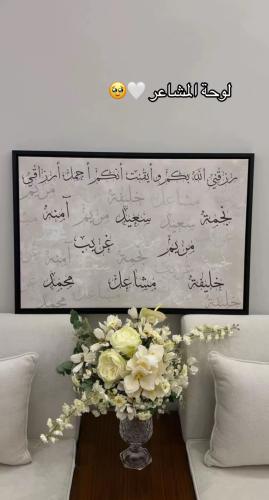 لوحة المشاعر 🤍🥹
رزقني الله بكم و أيقنت أنكم أجمل أرزاقي
نجمة سعيد آمنه
مريم غريب
خليفة مشاعل محمد